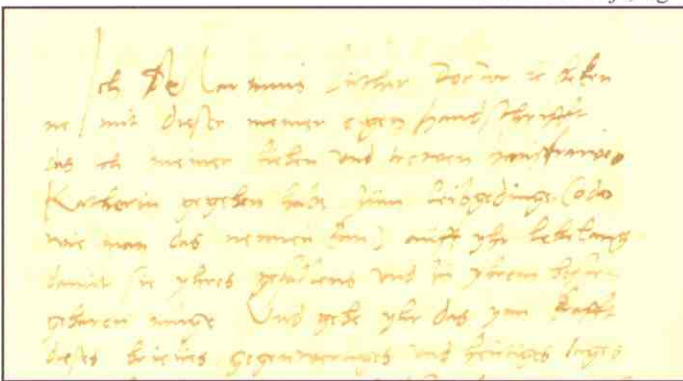 Ich M Martinus Luther Doctor etc beken
ne mit dieser meiner eigen handschrifft
das ich meiner lieben und trewen hausfrawen
Katherin gegeben habe zum leibgedinge (odder
wie man das nennen kan) auff yhr lebelang
damit sie yhres gefallens und zu yhrem besten
gebaren müge Und gebe yhr das ynn krafft
dieses brieves gegenwertiges und heutiges tages